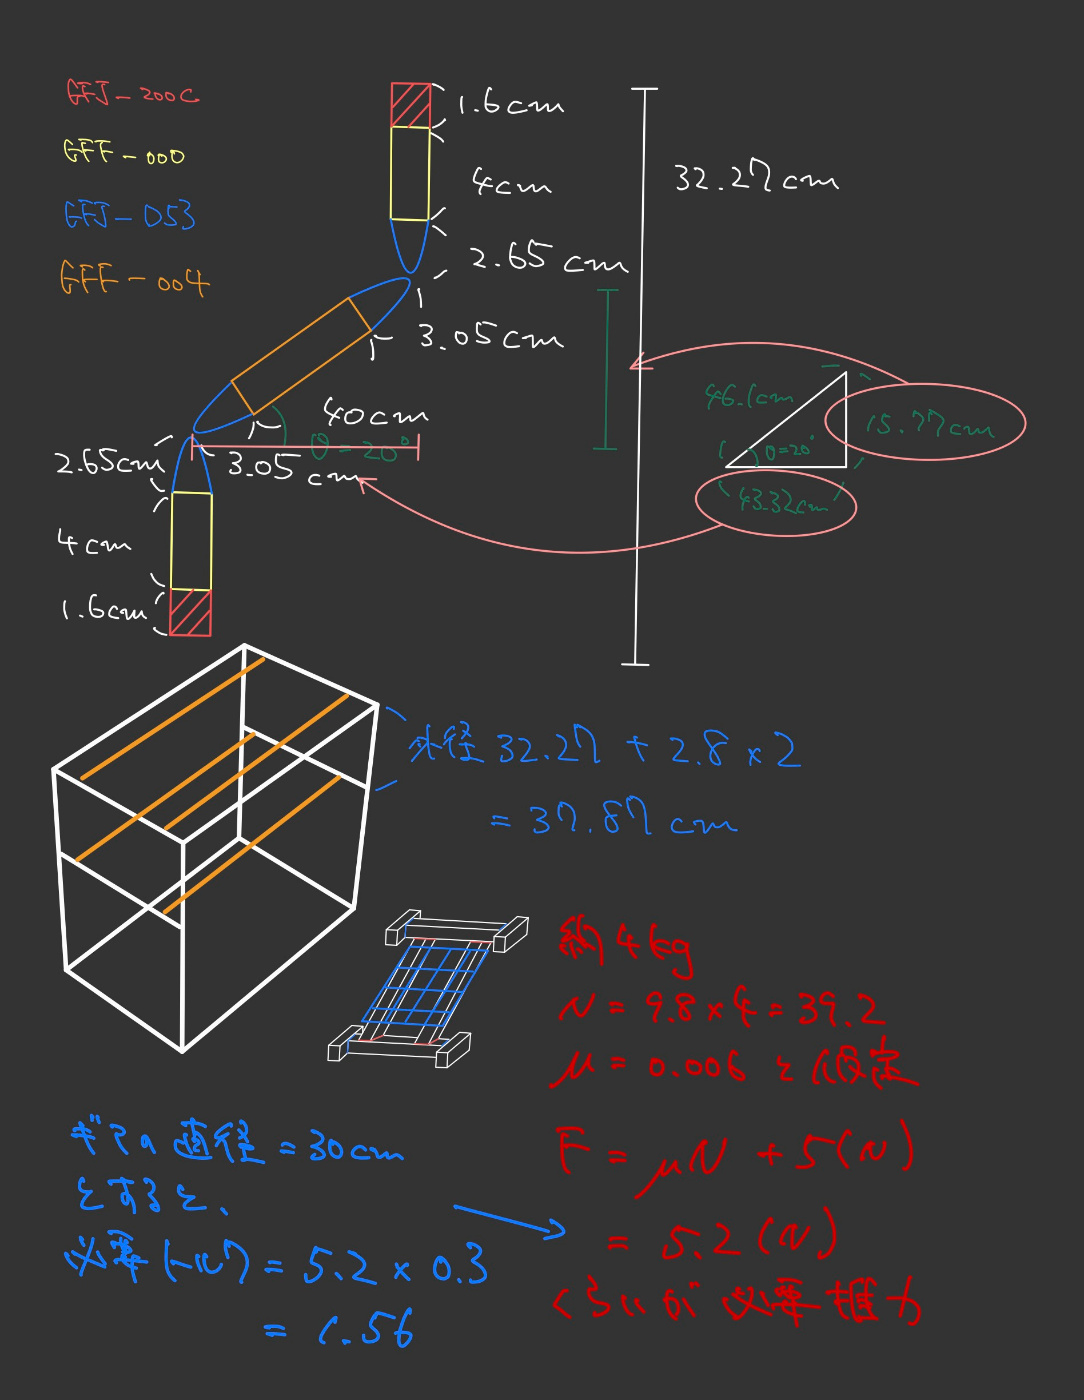 GFJ-200C
GFF-000
GFJ-D53
GFF-004
1.6cm
4cm
2.65cm
3.05cm
40cm
θ=20°
3.05cm
2.65cm
4cm
1.6cm
32.27cm
46.1cm
15.77cm
θ=20°
43.32cm
外径 32.27 + 2.8 × 2
= 37.87cm
約4kg
N = 9.8 × 4 = 39.2
μ = 0.006 と仮定
F = μN + 5(N)
= 5.2(N)
くらいが必要推力
ギアの直径 = 30cm
とすると、
必要トルク = 5.2 × 0.3
= 1.56